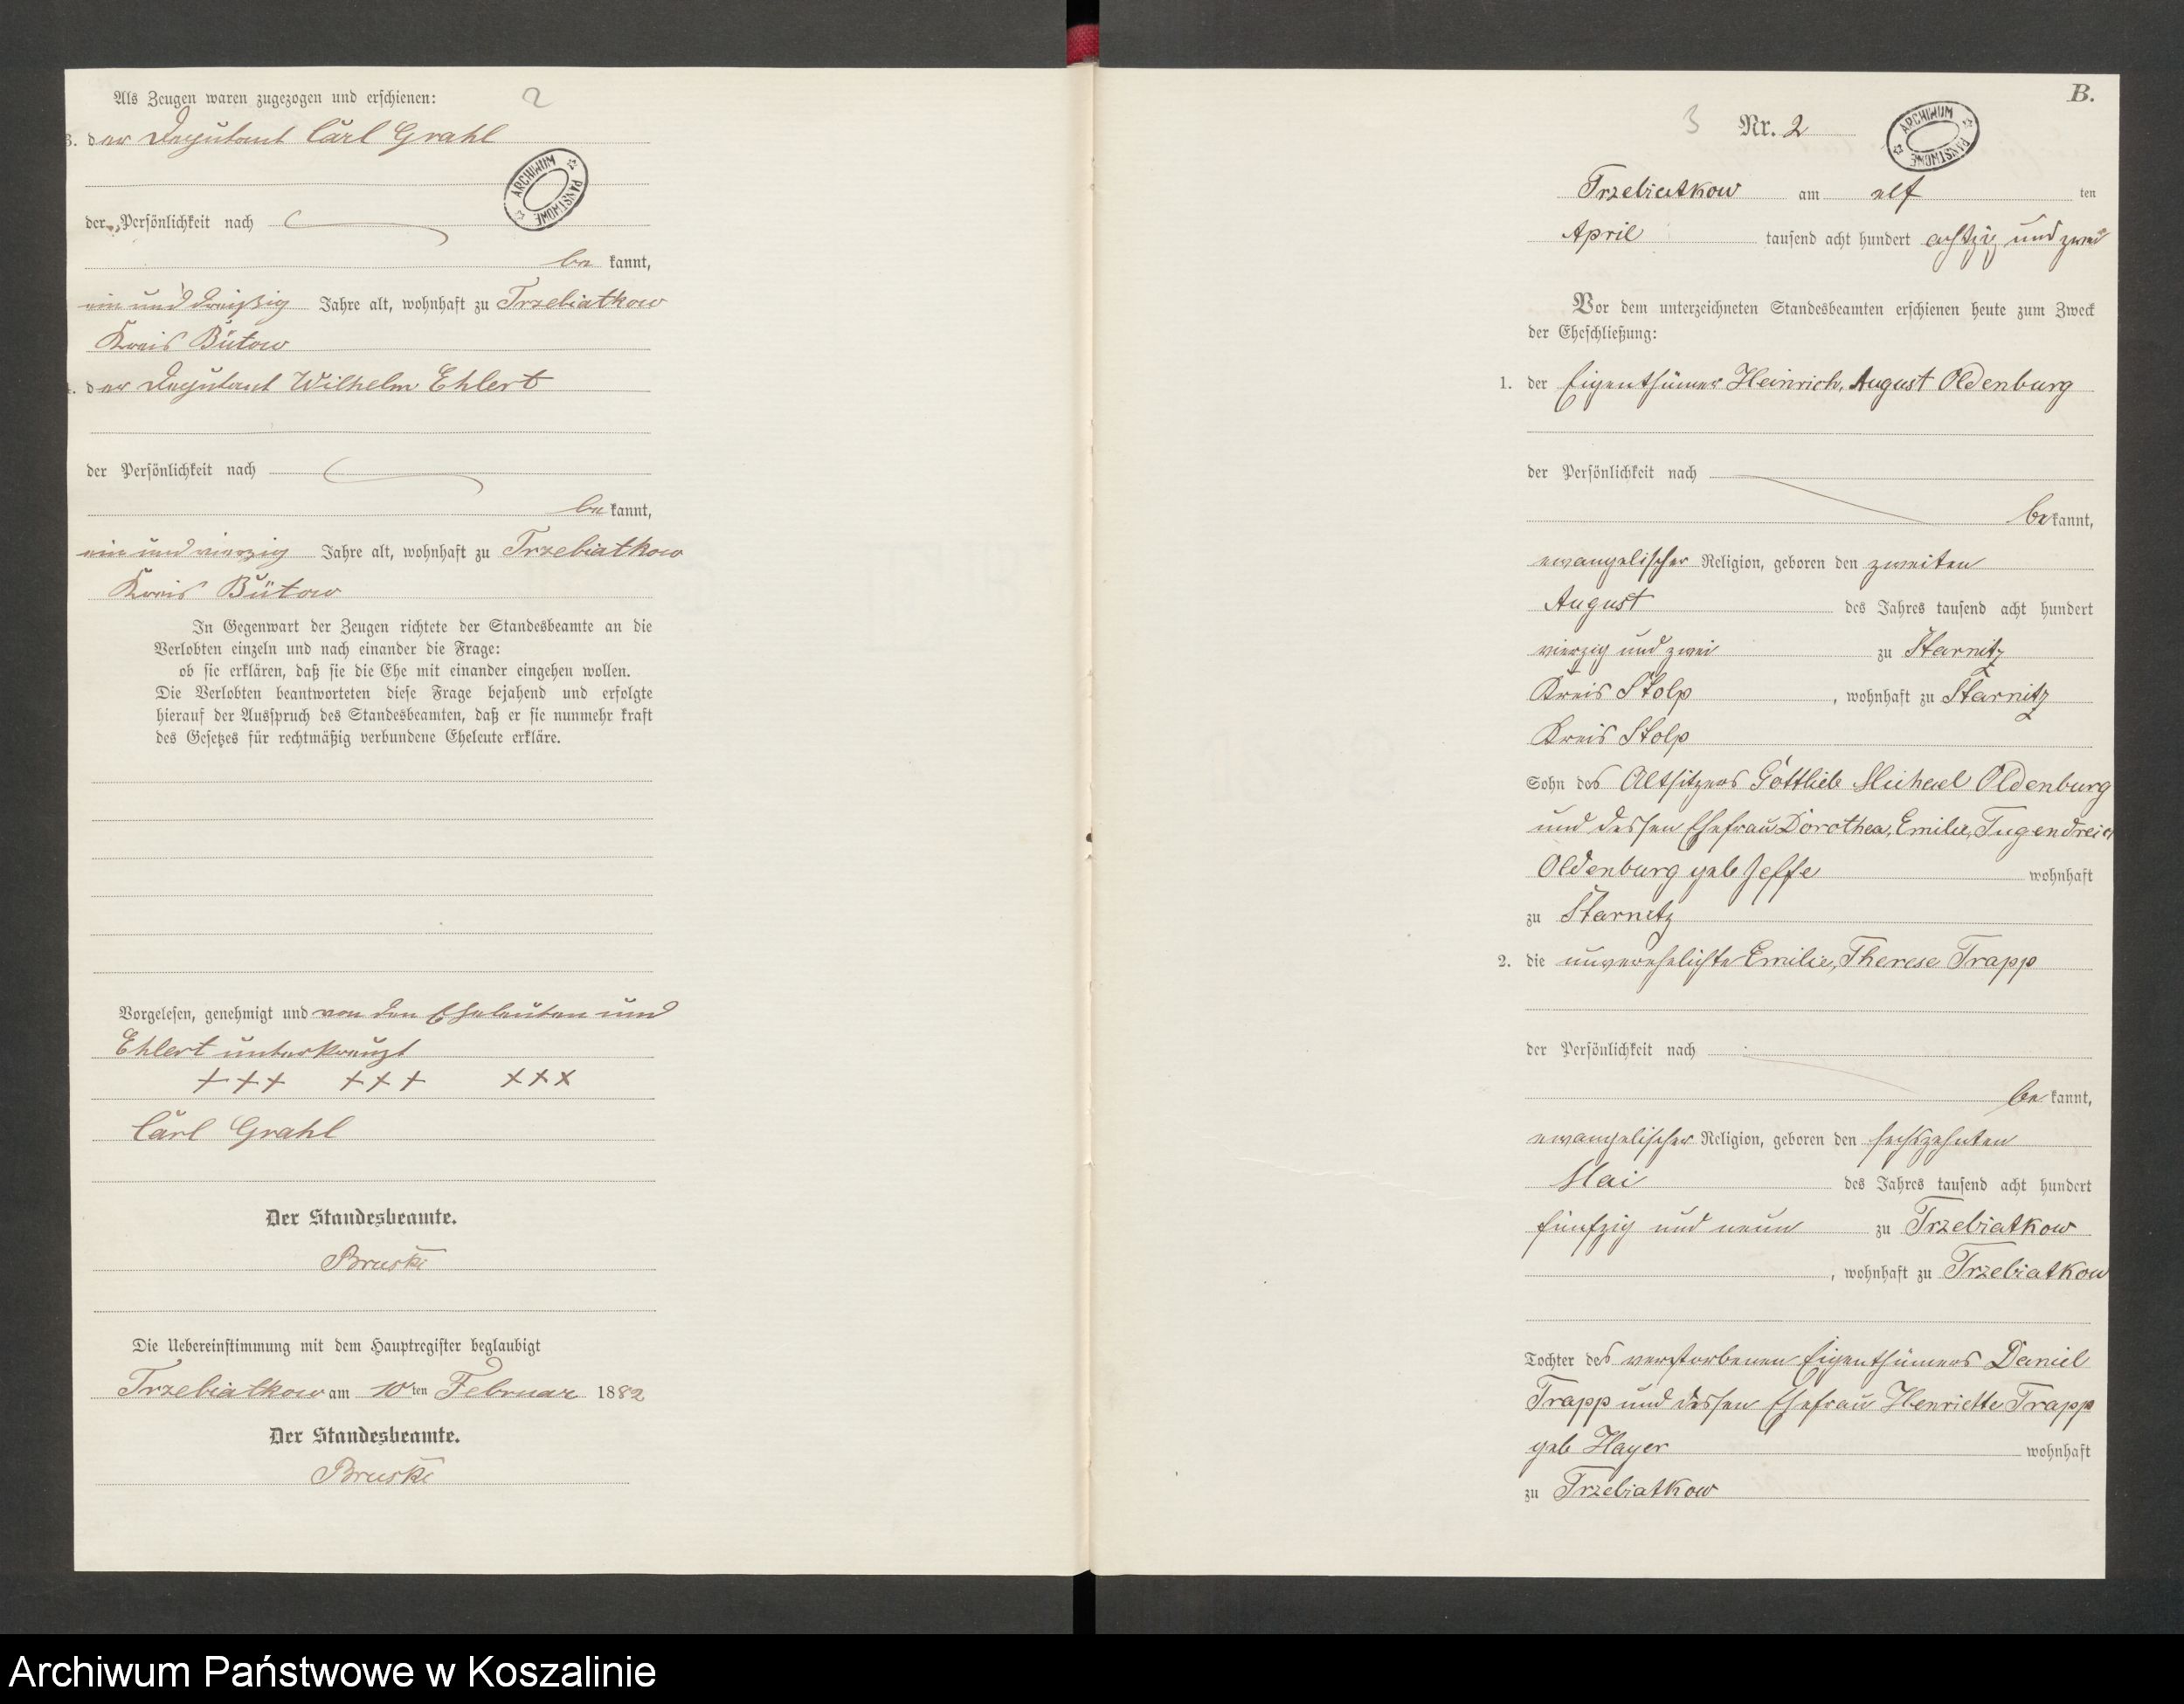 Als Zeugen waren zugezogen und erschienen:
2
3. der Deputant Carl Grahl
ARCHIWUM PAŃSTWOWE
der Persönlichkeit nach
bekannt,
ein und dreißig Jahre alt, wohnhaft zu Trzebiatkow
Kreis Bütow
4. der Deputant Wilhelm Ehlert
der Persönlichkeit nach
bekannt,
ein und vierzig Jahre alt, wohnhaft zu Trzebiatkow
Kreis Bütow
In Gegenwart der Zeugen richtete der Standesbeamte an die
Verlobten einzeln und nach einander die Frage:
ob sie erklären, daß sie die Ehe mit einander eingehen wollen.
Die Verlobten beantworteten diese Frage bejahend und erfolgte
hierauf der Ausspruch des Standesbeamten, daß er sie nunmehr kraft
des Gesetzes für rechtmäßig verbundene Eheleute erkläre.
Vorgelesen, genehmigt und von den Eheleuten und
Ehlert unterkreuzt
+++ +++ xxx
Carl Grahl
Der Standesbeamte.
Bruski
Die Uebereinstimmung mit dem Hauptregister beglaubigt
Trzebiatkow am 10ten Februar 1882
Der Standesbeamte.
Bruski
B.
3 Nr. 2
ARCHIWUM PAŃSTWOWE
Trzebiatkow am elf ten
April tausend acht hundert achtzig und zwei
Vor dem unterzeichneten Standesbeamten erschienen heute zum Zweck
der Eheschließung:
1. der Eigenthümer Heinrich, August Oldenburg
der Persönlichkeit nach
bekannt,
evangelischer Religion, geboren den zweiten
August des Jahres tausend acht hundert
vierzig und zwei zu Starnitz
Kreis Stolp, wohnhaft zu Starnitz
Kreis Stolp
Sohn des Altsitzers Gottlieb Michael Oldenburg
und dessen Ehefrau Dorothea, Emilie, Tugendreich
Oldenburg geb Jeffe wohnhaft
zu Starnitz
2. die unverehelichte Emilie, Therese Trapp
der Persönlichkeit nach
bekannt,
evangelischer Religion, geboren den sechszehnten
Mai des Jahres tausend acht hundert
fünfzig und neun zu Trzebiatkow
, wohnhaft zu Trzebiatkow
Tochter des verstorbenen Eigenthümers Daniel
Trapp und dessen Ehefrau Henriette Trapp
geb Hayer wohnhaft
zu Trzebiatkow
Archiwum Państwowe w Koszalinie